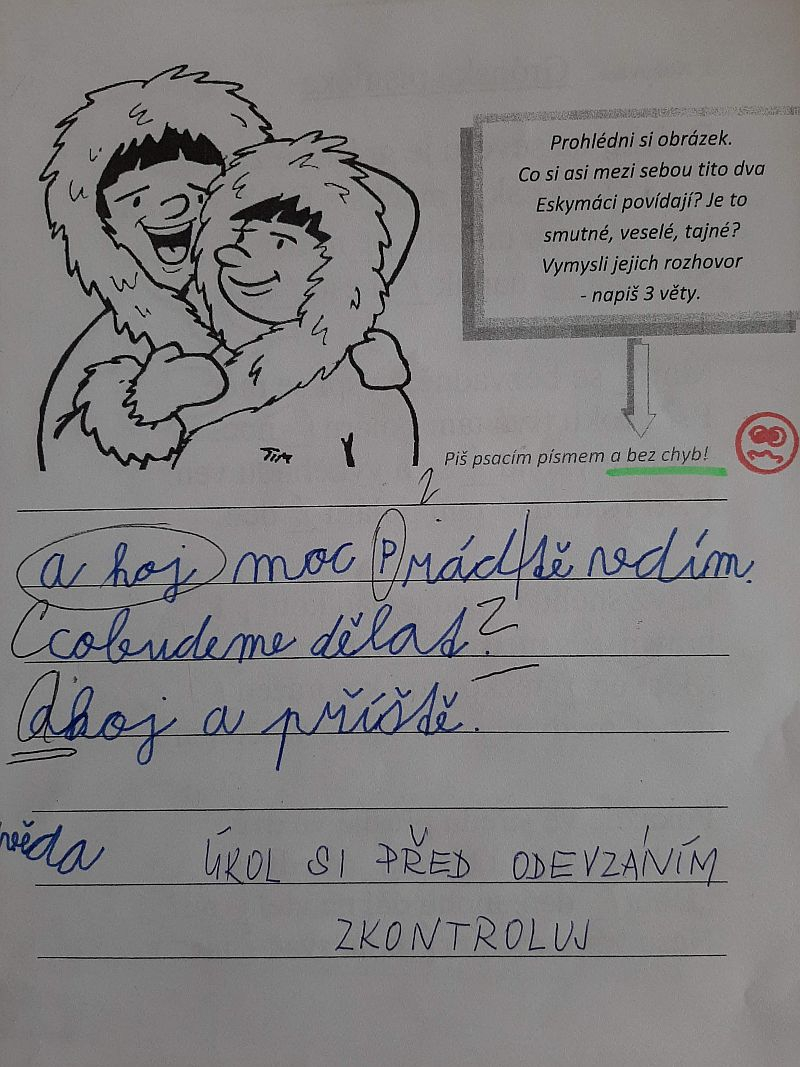 Prohlédni si obrázek.
Co si asi mezi sebou tito dva
Eskymáci povídají? Je to
smutné, veselé, tajné?
Vymysli jejich rozhovor
- napiš 3 věty.
TIM
Piš psacím písmem a bez chyb!
a hoj moc Prádtě vdím.
cobudeme dělat?
ahoj a příště.
věda
ÚKOL SI PŘED ODEVZÁNÍM
ZKONTROLUJ